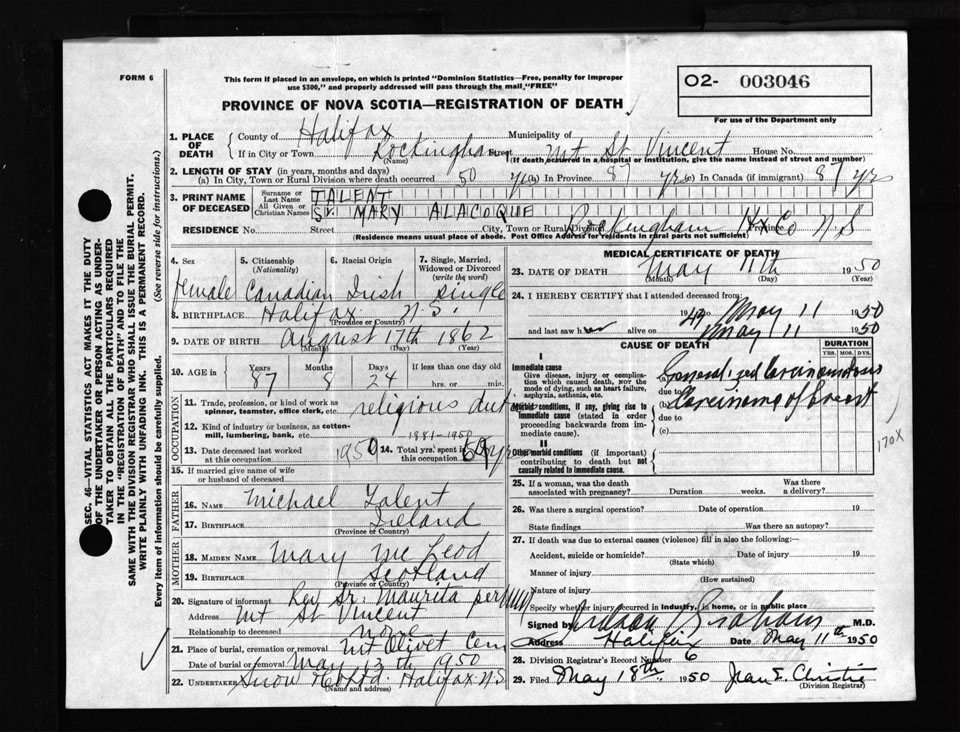 FORM 6
This form if placed in an envelope, on which is printed "Dominion Statistics—Free, penalty for improper
use $300," and properly addressed will pass through the mail, "FREE"
PROVINCE OF NOVA SCOTIA—REGISTRATION OF DEATH
O2- 003046
For use of the Department only
SEC. 46—VITAL STATISTICS ACT MAKES IT THE DUTY
OF THE UNDERTAKER OR PERSON ACTING AS UNDER-
TAKER TO OBTAIN ALL THE PARTICULARS REQUIRED
IN THE "REGISTRATION OF DEATH" AND TO FILE THE
SAME WITH THE DIVISION REGISTRAR WHO SHALL ISSUE THE BURIAL PERMIT.
WRITE PLAINLY WITH UNFADING INK. THIS IS A PERMANENT RECORD.
Every item of information should be carefully supplied. (See reverse side for instructions.)
1. PLACE OF DEATH
County of Halifax Municipality of
If in City or Town Rockingham Street Mt St Vincent House No.
(If death occurred in a hospital or institution, give the name instead of street and number)
2. LENGTH OF STAY (in years, months and days)
(a) In City, Town or Rural Division where death occurred 50 yrs (b) In Province 87 yrs (c) In Canada (if immigrant) 87 yrs
3. PRINT NAME OF DECEASED
Surname or Last Name TALENT
All Given or Christian Names Sr MARY ALACOQUE
RESIDENCE No. Street City, Town or Rural Division Rockingham Hx Co Province N S
(Residence means usual place of abode. Post Office Address for residents in rural parts not sufficient)
4. Sex female
5. Citizenship (Nationality) Canadian
6. Racial Origin Irish
7. Single, Married, Widowed or Divorced (write the word) single
8. BIRTHPLACE Halifax N.S.
(Province or Country)
9. DATE OF BIRTH August 17th 1862
(Month) (Day) (Year)
10. AGE in Years 87 Months 8 Days 24 If less than one day old
hrs. or min.
OCCUPATION
11. Trade, profession, or kind of work as
spinner, teamster, office clerk, etc. religious duties
12. Kind of industry or business, as cotton-
mill, lumbering, bank, etc. 1881-1950
13. Date deceased last worked
at this occupation 1950
14. Total yrs. spent in
this occupation 69 yrs
15. If married give name of wife
or husband of deceased
FATHER
16. NAME Michael Talent
17. BIRTHPLACE Ireland
(Province or Country)
MOTHER
18. MAIDEN NAME Mary McLeod
19. BIRTHPLACE Scotland
(Province or Country)
20. Signature of informant Rev Sr. Maurita per
Address Mt St Vincent
Relationship to deceased none
21. Place of burial, cremation or removal Mt Olivet Cem
Date of burial or removal May 13th 1950
22. UNDERTAKER Snow Co Ltd. Halifax N.S
(Name and address)
MEDICAL CERTIFICATE OF DEATH
23. DATE OF DEATH May 11th 1950
(Month) (Day) (Year)
24. I HEREBY CERTIFY that I attended deceased from
1949 to May 11 1950
and last saw her alive on May 11 1950
CAUSE OF DEATH
DURATION
YRS. MOS. DYS.
I
Immediate cause
Give disease, injury or complica-
tion which caused death, NOT the
mode of dying, such as heart failure,
asphyxia, asthenia, etc.
(a) Generalized Carcinomatosis
due to
Morbid conditions, if any, giving rise to
immediate cause (stated in order
proceeding backwards from im-
mediate cause).
(b) Carcinoma of breast
due to
(c)
170X
II
Other morbid conditions (if important)
contributing to death but not
causally related to immediate cause.
25. If a woman, was the death
associated with pregnancy? Duration weeks. Was there
a delivery?
26. Was there a surgical operation? Date of operation 19
State findings Was there an autopsy?
27. If death was due to external causes (violence) fill in also the following:—
Accident, suicide or homicide? Date of injury 19
(State which)
Manner of injury
(How sustained)
Nature of injury
Specify whether injury occurred in industry, in home, or in public place
Signed by Judson Graham M.D.
Address Halifax Date May 11th 1950
28. Division Registrar's Record Number 6
29. Filed May 18th 1950 Jean E. Christie
(Division Registrar)